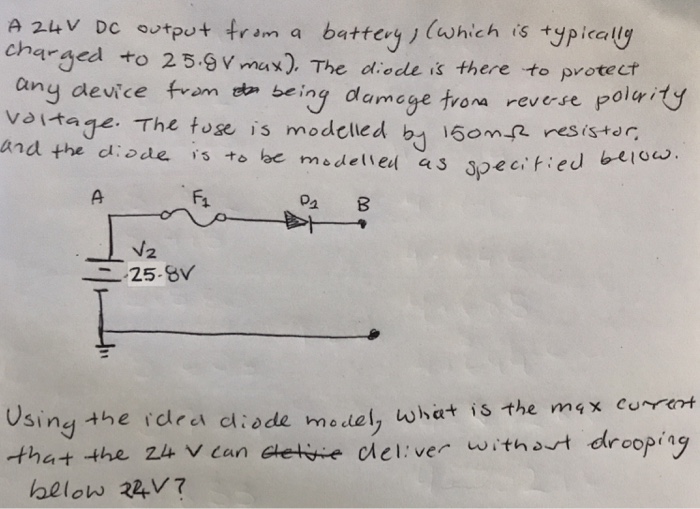 A 24V DC output from a battery, (which is typically
charged to 25.8V max). The diode is there to protect
any device from being damage from reverse polarity
voltage. The fuse is modelled by 150mΩ resistor,
and the diode is to be modelled as specified below.
A F1 D2 B
V2
25.8V
Using the ideal diode model, what is the max current
that the 24 V can deliver without drooping
below 24V?